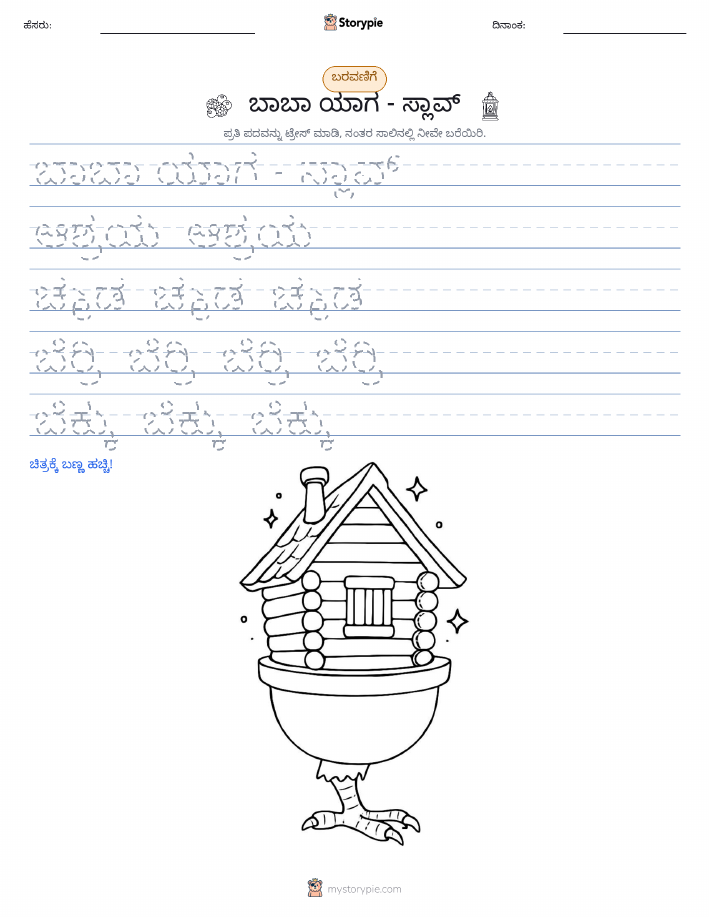 ಹೆಸರು:
Storypie
ದಿನಾಂಕ:
ಬರವಣಿಗೆ
ಬಾಬಾ ಯಾಗ - ಸ್ಲಾವ್
ಪ್ರತಿ ಪದವನ್ನು ಟ್ರೇಸ್ ಮಾಡಿ, ನಂತರ ಸಾಲಿನಲ್ಲಿ ನೀವೇ ಬರೆಯಿರಿ.
ಬಾಬಾ ಯಾಗ - ಸ್ಲಾವ್
ಆಶ್ರಯ ಆಶ್ರಯ
ಬೆರ್ರಿ ಬೆರ್ರಿ ಬೆರ್ರಿ ಬೆರ್ರಿ
ಬೆಕ್ಕು ಬೆಕ್ಕು ಬೆಕ್ಕು
ಚಿತ್ರಕ್ಕೆ ಬಣ್ಣ ಹಚ್ಚಿ!
mystorypie.com